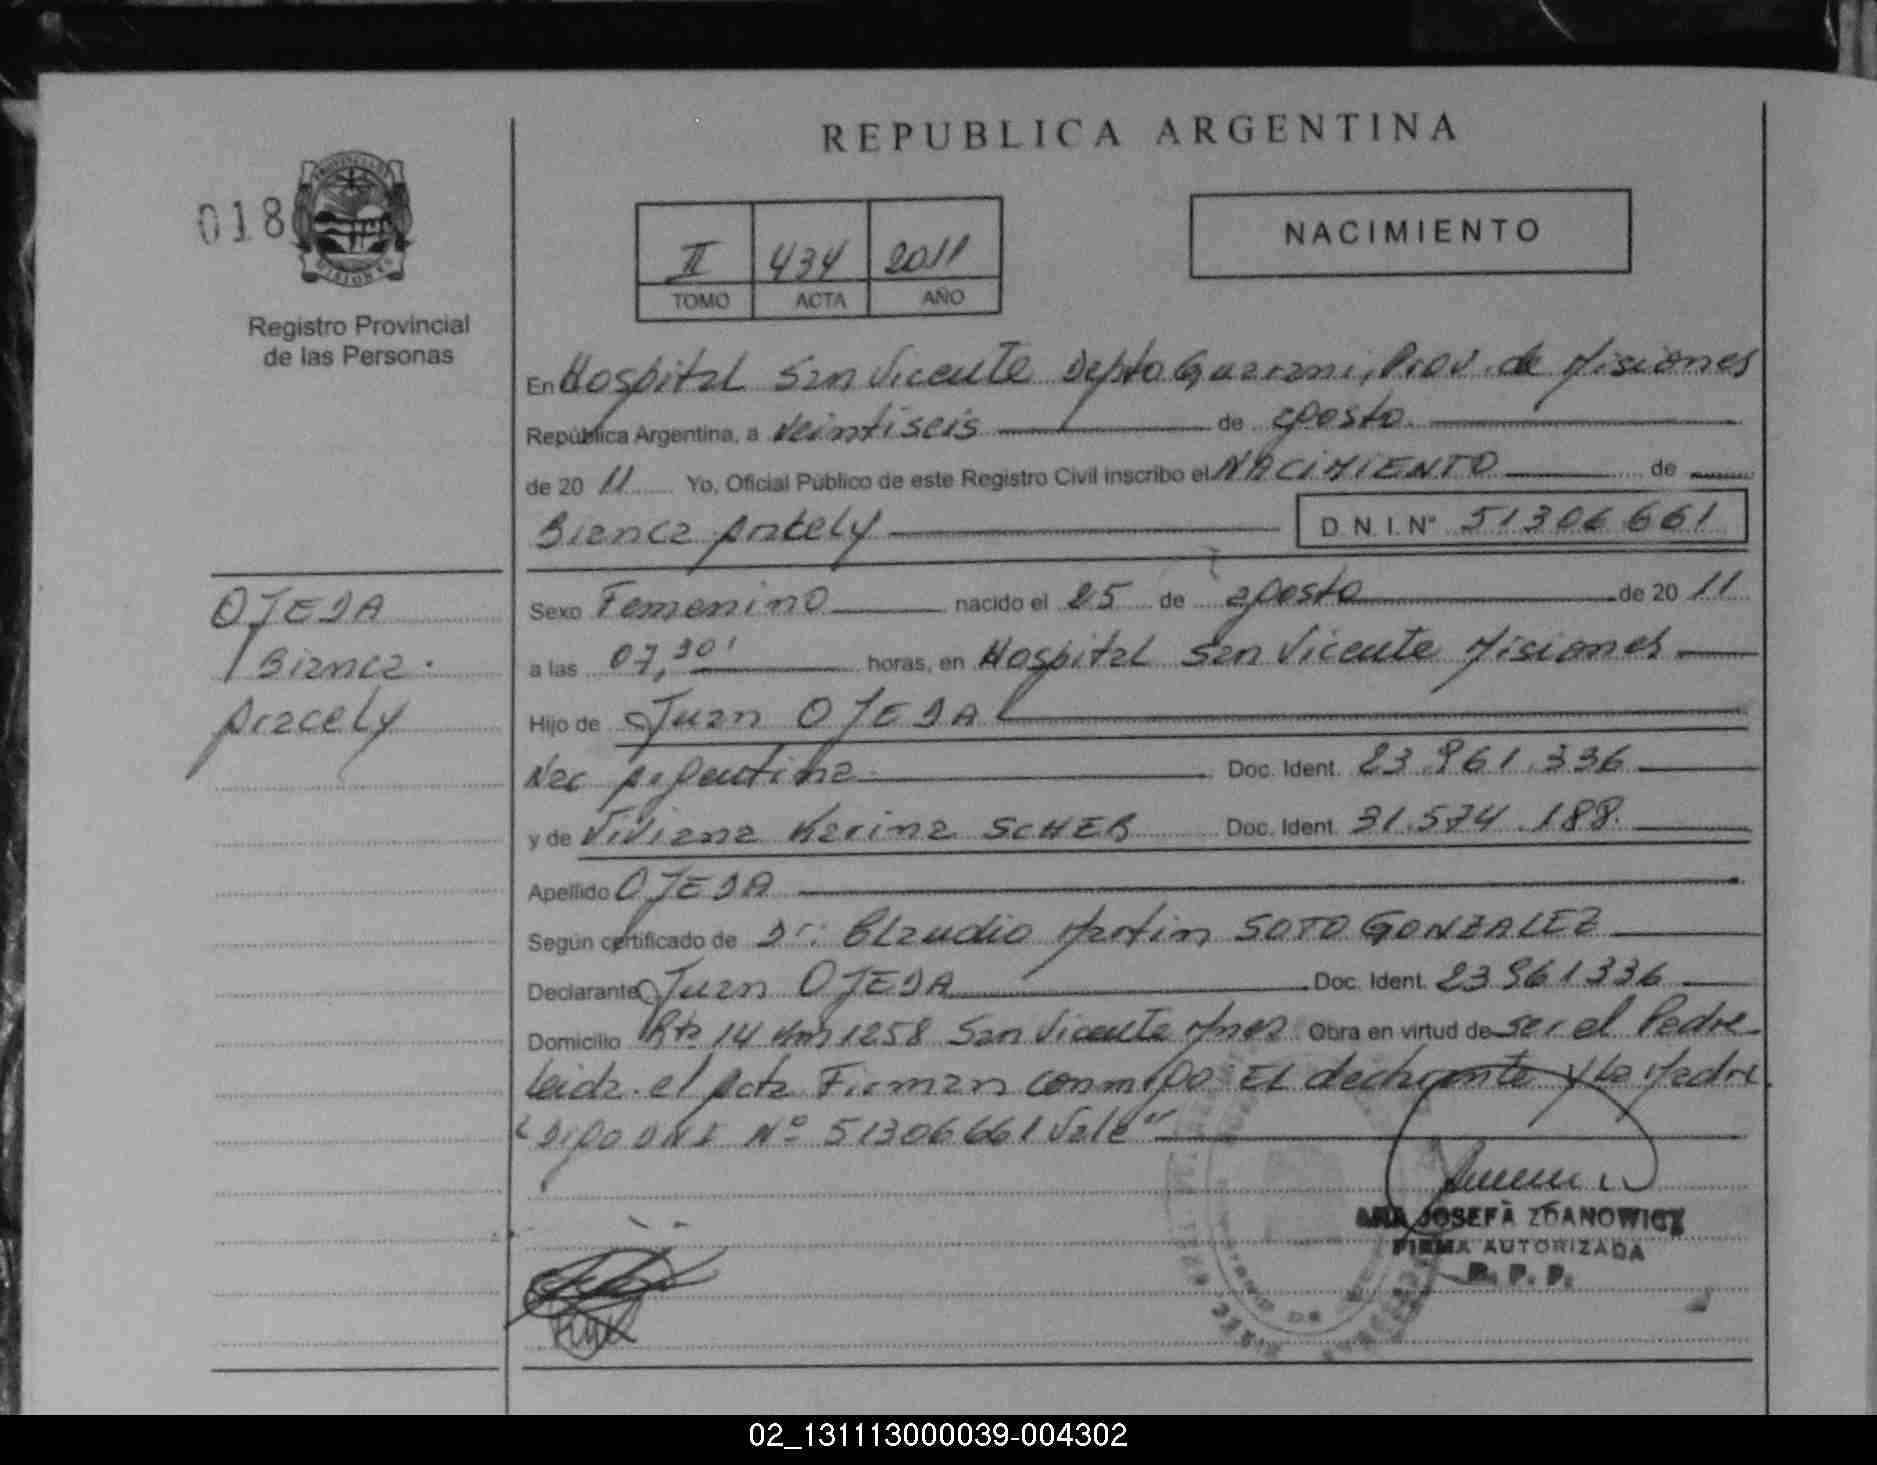 REPUBLICA ARGENTINA
018
Registro Provincial
de las Personas
II 434 2011
TOMO ACTA AÑO
NACIMIENTO
En Hospital San Vicente Depto Guarani, Prov. de Misiones
República Argentina, a Veintiseis de agosto
de 20 11 Yo, Oficial Público de este Registro Civil inscribo el NACIMIENTO de
Bianca Aracely D.N.I. Nº 51306661
OJEDA
Bianca
Aracely
Sexo Femenino nacido el 25 de agosto de 20 11
a las 07,30' horas, en Hospital San Vicente Misiones
Hijo de Juan OJEDA
Nac Argentina Doc. Ident. 23.961.336
y de Viviana Karina SCHER Doc. Ident. 31.574.188.
Apellido OJEDA
Según certificado de Dr: Claudio Martin SOTO GONZALEZ
Declarante Juan OJEDA Doc. Ident. 23961336
Domicilio Rta 14 Km 1258 San Vicente Mnes Obra en virtud de ser el Padre
Leida el acta Firman conmigo EL declarante y La Madre
"Digo DNI Nº 51306661 Vale"
ANA JOSEFA ZDANOWICZ
FIRMA AUTORIZADA
R. P. P.
02_131113000039-004302